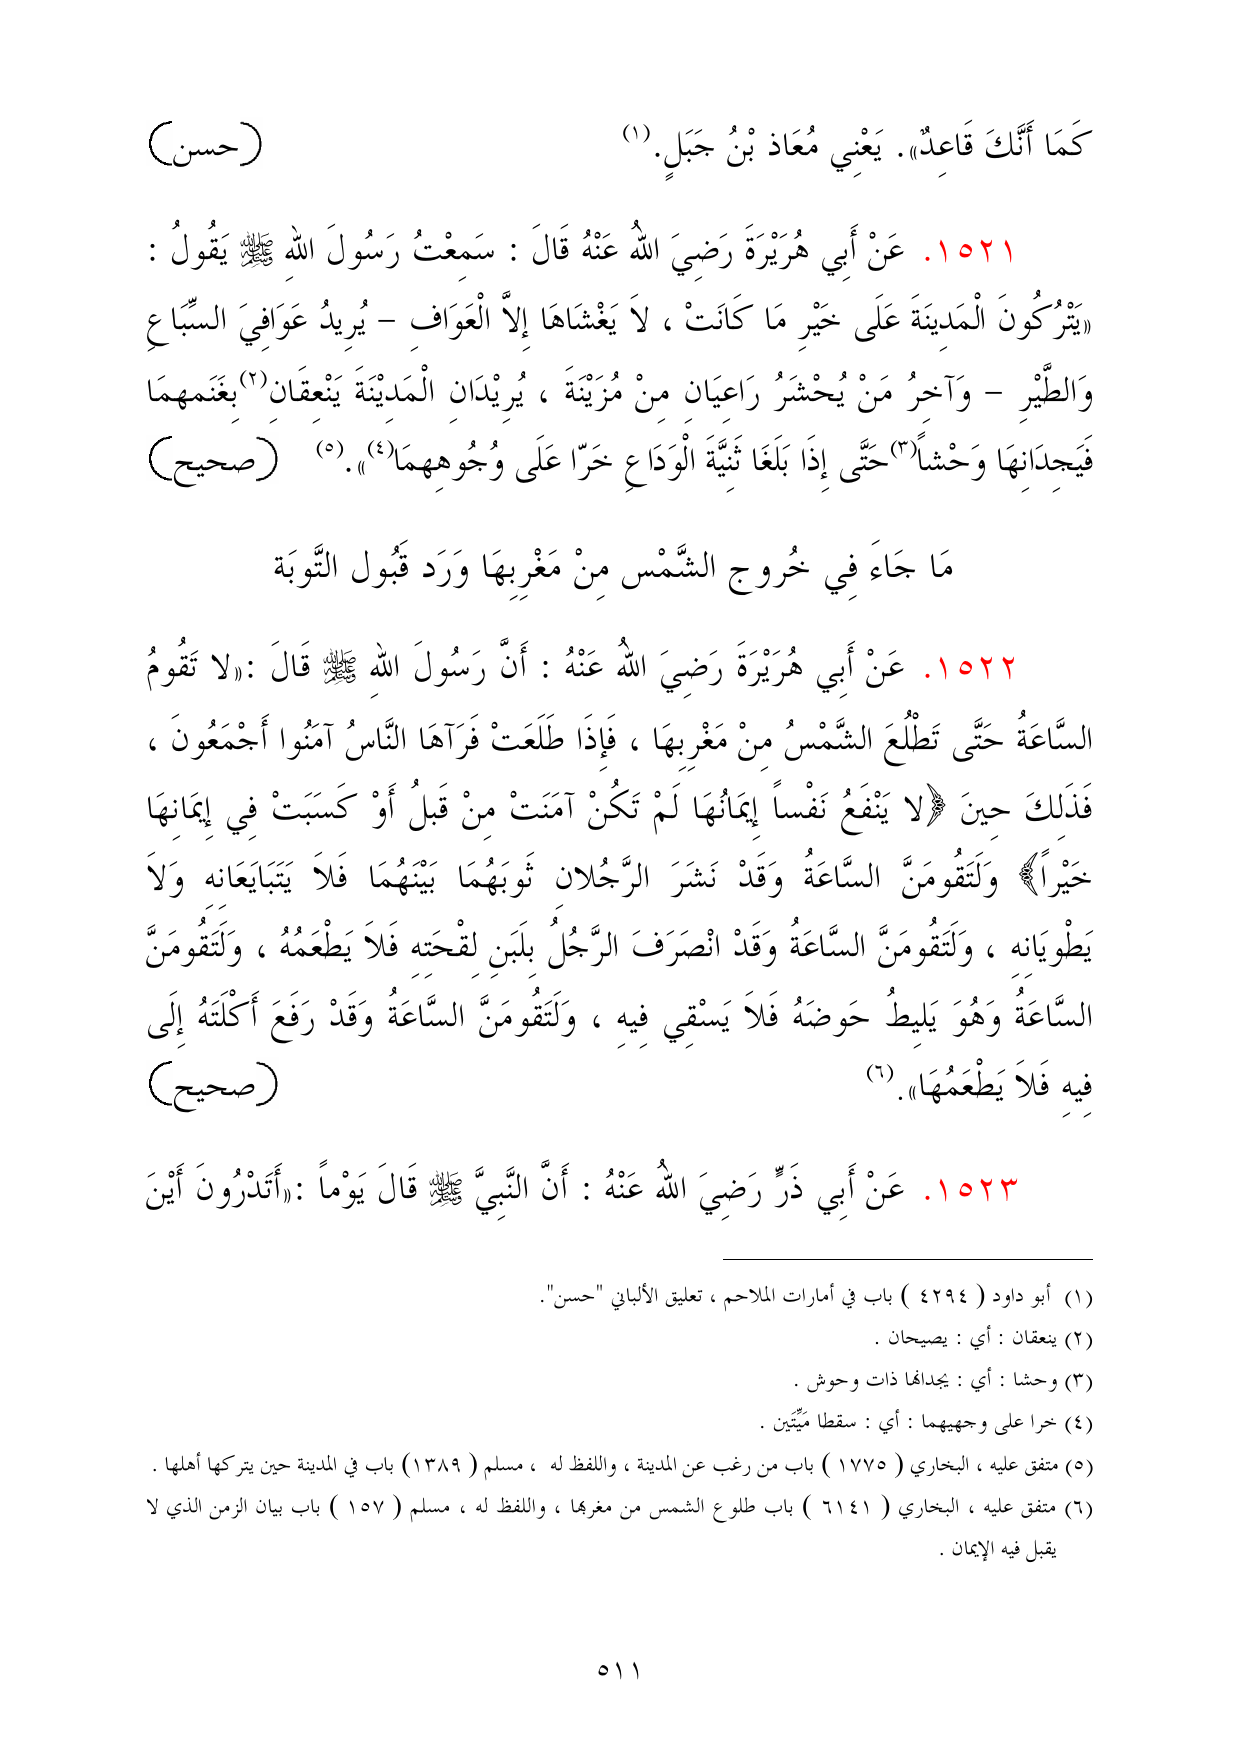 كَمَا أَنَّكَ قَاعِدٌ». يَعْنِي مُعَاذ بْنُ جَبَلٍ.(١) (حسن)
١٥٢١. عَنْ أَبِي هُرَيْرَةَ رَضِيَ اللهُ عَنْهُ قَالَ : سَمِعْتُ رَسُولَ اللهِ ﷺ يَقُولُ :
«يَتْرُكُونَ الْمَدِينَةَ عَلَى خَيْرِ مَا كَانَتْ ، لاَ يَغْشَاهَا إِلاَّ الْعَوَافِ – يُرِيدُ عَوَافِيَ السِّبَاعِ
وَالطَّيْرِ – وَآخِرُ مَنْ يُحْشَرُ رَاعِيَانِ مِنْ مُزَيْنَةَ ، يُرِيْدَانِ الْمَدِيْنَةَ يَنْعِقَانِ(٢)بِغَنَمِهِمَا
فَيَجِدَانِهَا وَحْشاً(٣)حَتَّى إِذَا بَلَغَا ثَنِيَّةَ الْوَدَاعِ خَرّا عَلَى وُجُوهِهِمَا(٤)».(٥) (صحيح)
مَا جَاءَ فِي خُروج الشَّمْس مِنْ مَغْرِبِهَا وَرَد قَبُول التَّوبَة
١٥٢٢. عَنْ أَبِي هُرَيْرَةَ رَضِيَ اللهُ عَنْهُ : أَنَّ رَسُولَ اللهِ ﷺ قَالَ :«لا تَقُومُ
السَّاعَةُ حَتَّى تَطْلُعَ الشَّمْسُ مِنْ مَغْرِبِهَا ، فَإِذَا طَلَعَتْ فَرَآهَا النَّاسُ آمَنُوا أَجْمَعُونَ ،
فَذَلِكَ حِينَ ﴿لا يَنْفَعُ نَفْساً إِيمَانُهَا لَمْ تَكُنْ آمَنَتْ مِنْ قَبلُ أَوْ كَسَبَتْ فِي إِيمَانِهَا
خَيْراً﴾ وَلَتَقُومَنَّ السَّاعَةُ وَقَدْ نَشَرَ الرَّجُلانِ ثَوبَهُمَا بَيْنَهُمَا فَلاَ يَتَبَايَعَانِهِ وَلاَ
يَطْوِيَانِهِ ، وَلَتَقُومَنَّ السَّاعَةُ وَقَدْ انْصَرَفَ الرَّجُلُ بِلَبَنِ لِقْحَتِهِ فَلاَ يَطْعَمُهُ ، وَلَتَقُومَنَّ
السَّاعَةُ وَهُوَ يَلِيطُ حَوضَهُ فَلاَ يَسْقِي فِيهِ ، وَلَتَقُومَنَّ السَّاعَةُ وَقَدْ رَفَعَ أَكْلَتَهُ إِلَى
فِيهِ فَلاَ يَطْعَمُهَا».(٦) (صحيح)
١٥٢٣. عَنْ أَبِي ذَرٍّ رَضِيَ اللهُ عَنْهُ : أَنَّ النَّبِيَّ ﷺ قَالَ يَوْماً :«أَتَدْرُونَ أَيْنَ
(١) أبو داود ( ٤٢٩٤ ) باب في أمارات الملاحم ، تعليق الألباني "حسن".
(٢) ينعقان : أي : يصيحان .
(٣) وحشا : أي : يجدانها ذات وحوش .
(٤) خرا على وجهيهما : أي : سقطا مَيِّتَين .
(٥) متفق عليه ، البخاري ( ١٧٧٥ ) باب من رغب عن المدينة ، واللفظ له ، مسلم ( ١٣٨٩) باب في المدينة حين يتركها أهلها .
(٦) متفق عليه ، البخاري ( ٦١٤١ ) باب طلوع الشمس من مغربها ، واللفظ له ، مسلم ( ١٥٧ ) باب بيان الزمن الذي لا
يقبل فيه الإيمان .
٥١١